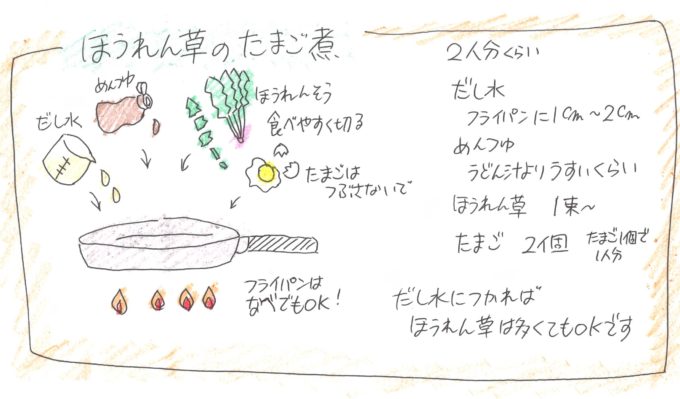 ほうれん草のたまご煮
めんつゆ
だし水
ほうれんそう
食べやすく切る
たまごは
つぶさないで
フライパンは
なべでもOK!
2人分くらい
だし水
フライパンに1cm〜2cm
めんつゆ
うどん汁よりうすいくらい
ほうれん草 1束〜
たまご 2個 たまご1個で
1人分
だし水につかれば
ほうれん草は多くてもOKです